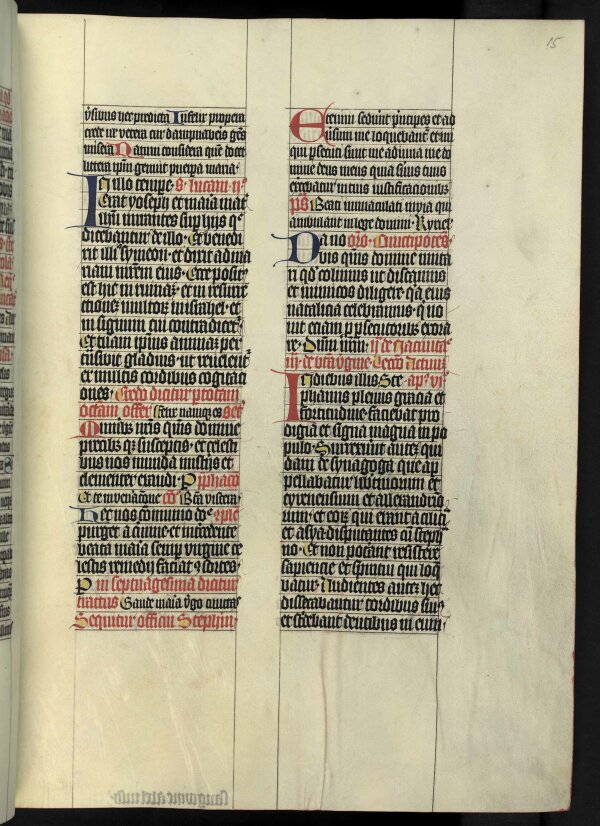 15
ysibus hec predicta Infelix propera
crede ur vetera cur dampnaberis gens
misera Natum considera quem docet
littera ipsum genuit puerpera maria
In illo tempe s lucam ii
Erat yoseph et maria mat
ihu mirantes sup hijs q
dicebantur de illo Et benedi
xit illis symeon et dixit ad ma
riam matrem eius Ecce posit
est hic in ruinam et in resurre
ctionem multorum in israhel et
in signum cui contradicet
Et tuam ipius animam per
transibit gladius ut revelent
ex multis cordibus cogitati
ones Credo dicitur p totam
octam offer
Muneribus nris qums domine
precibusq susceptis et celesti
bus nos munda misterijs et
clementer exaudi
Hec nos communio dne
purget a crimine et intercedente
beata maria semp virgine ce
lestis remedij faciat consortes
In septuagesima dicitur
tractus Gaude maria virgo cunctas
Sequitur officium Stephani
Etenim sederunt principes et ad
versum me loquebantur et ini
qui persecuti sunt me adiuva me do
mine deus meus quia servus tuus
exercebatur in tuis iustificacionibus
ps Beati immaculati in via qui
ambulant in lege domini Kyriel
Da no oro Cunctipotens
bis qums domine imita
ri qd colimus ut discamus
et inimicos diligere qa eius
natalicia celebramus qui no
vit eciam p persecutoribus exora
re Dnm nrm
In diebus illis Ste ap vi
phanus plenus gracia et
fortitudine faciebat pro
digia et signa magna in po
pulo Surrexerunt autem qui
dam de synagoga que ap
pellabatur libertinorum et
cyrenensium et allexandrino
rum et eorum qui erant a cilicia
et asya disputantes cum steph
no Et non poterant resistere
sapiencie et spiritui qui loq
batur Audientes autem hec
dissecabantur cordibus suis
et stridebant dentibus in eum